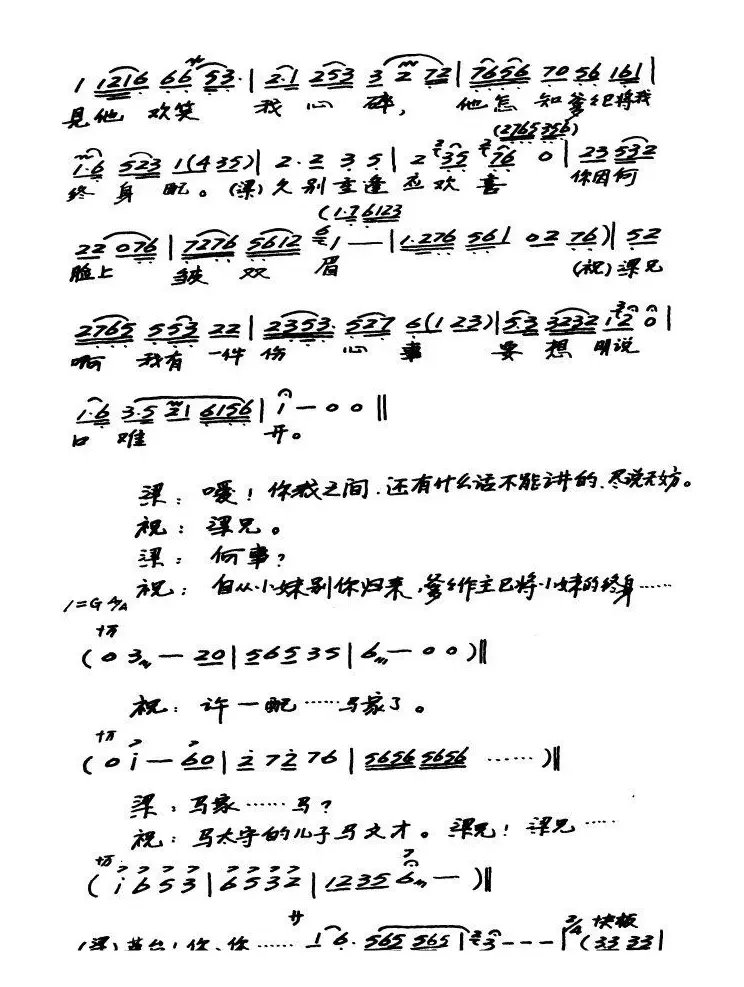 1 1216 66 53· | 2·1 253 3 2 72 | 7656 70 56 161 |
見他 欢笑 我心碎, 他怎知爹已将我
(2765 356)
1·6 523 1(4 35) | 2·2 3 5 | 2 35 76 0 | 23 532
终身配。(梁)久别重逢应欢喜 你因何
(1·76123
22 076 | 7276 5612 1 — | 1·276 561 02 76) | 52
脸上皱双眉 (祝)梁兄
2765 553 22 | 2353· 527 6(1 23) | 53 3232 12 0 |
啊我有一件伤心事 要想明说
1·6 3·5 21 6156 | 1 — 0 0 ‖
口难开。
梁:嗳!你我之间.还有什么话不能讲的、尽说无妨。
祝:梁兄。
梁:何事?
祝:自从小妹别你归来,爹爹作主已将小妹的终身……
1=G 4/4
(0 3 — 20 | 56535 | 6 — 0 0)‖
祝:许一配……马家了。
(0 i — 60 | 2 7276 | 5656 5656 ……)‖
梁:马家……马?
祝:马太守的儿子马文才。梁兄!梁兄……
(i 6 5 3 | 6 5 3 2 | 1235 6 — )‖
2/4 快板
(梁)英台!你、你…… 1 6· 565 565 | 3 - - - | (33 33 |